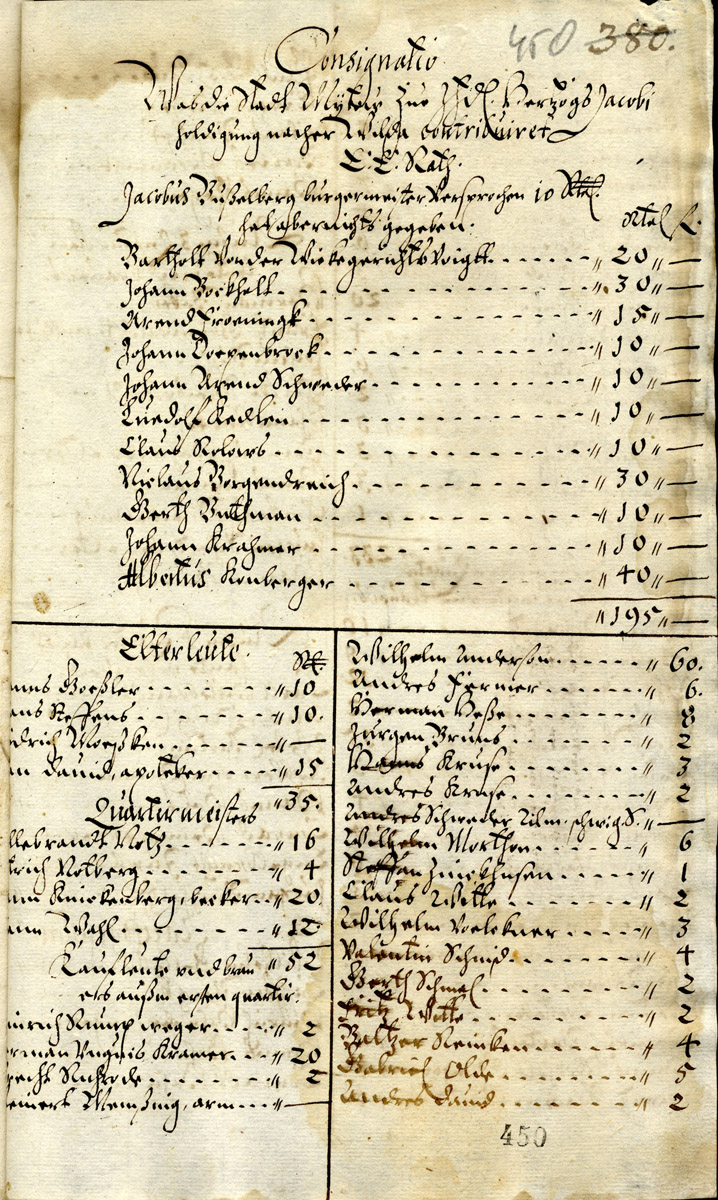 450 380.
Consignatio
Was die Stadt Mytow zue Herzogs Jacobi
holdigung nacher Wilda contribuiret
E. E. Rath.
Jacobus Bußelberg burgermeister Versprochen 10 Rtal.
hat aber nichts gegeben.
Rtal fl.
Bartholt von der Wieke gerichts Voigtt ------ " 20 " —
Johann Bockholt ------ " 30 " —
Arend Froeningk ------ " 15 " —
Johann Doepenbrock ------ " 10 " —
Johann Arend Schweder ------ " 10 " —
Luedolf Kedlein ------ " 10 " —
Claus Rolows ------ " 10 " —
Niclaus Borgendreich ------ " 30 " —
Gerth Buthman ------ " 10 " —
Johann Krahmer ------ " 10 " —
Albertus Konberger ------ " 40 " —
" 195 " —
Elterleute.
Rt.
anns Boeßler ------ " 10
ans Steffens ------ " 10.
idrich Moeßken ------ " —
an Dauid, apoteker ------ " 15
" 35.
Quartirmeisters
llebrandt Notz ------ " 16
trich Notberg ------ " 4
ann Knickenberg, becker ------ " 20
ann Wahl ------ " 12
" 52
Kaufleute vnd brau
ers außm ersten quartir.
inrich Rumpweger ------ " 2
erman Vngnis Kramer ------ " 20
precht Rickrode ------ " 2
einert Memßing, arm ------ " —
Wilhelm Anderson ------ " 60.
Andres Fermer ------ " 6.
Herman Heße ------ " 8
Jurgen Bruns ------ " 2
Hanns Kruse ------ " 3
Andres Kruse ------ " 2
Andres Schweder " —
Wilhelm Morthon ------ " 6
Steffan Zinckhusen ------ " 1
Claus Witte ------ " 2
Wilhelm Voelckner ------ " 3
Valentin Schmid ------ " 4
Gerth Schmal ------ " 2
Fritz Witte ------ " 2
Baltzer Reinken ------ " 4
Gabriel Olde ------ " 5
Andres Dauid ------ " 2
450